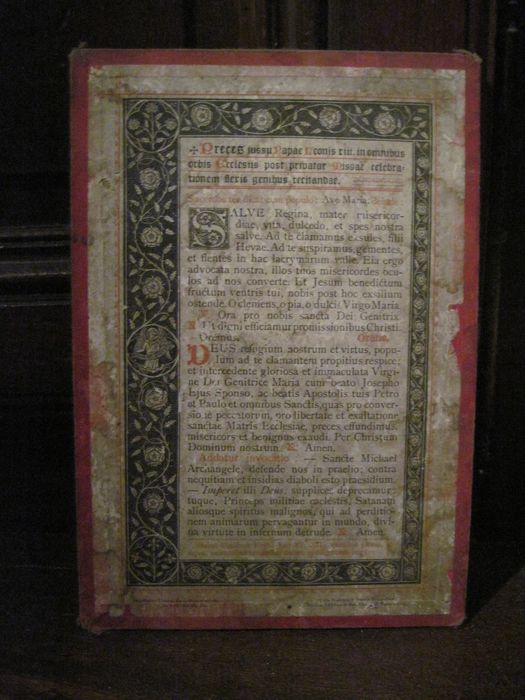 ✠ Preces jussu Papae Leonis xiii. in omnibus
orbis Ecclesiis post privatae Missae celebra-
tionem flexis genibus recitandae.
Sacerdos ter dicat cum populo: Ave Maria,
SALVE Regina, mater misericor-
diae, vita, dulcedo, et spes nostra
salve. Ad te clamamus exsules, filii
Hevae. Ad te suspiramus, gementes,
et flentes in hac lacrymarum valle. Eia ergo
advocata nostra, illos tuos misericordes ocu-
los ad nos converte. Et Jesum benedictum
fructum ventris tui, nobis post hoc exsilium
ostende. O clemens, o pia, o dulcis Virgo Maria.
℣. Ora pro nobis sancta Dei Genitrix.
℟. Ut digni efficiamur promissionibus Christi.
Oremus. Oratio.
DEUS refugium nostrum et virtus, popu-
lum ad te clamantem propitius respice;
et intercedente gloriosa et immaculata Virgi-
ne Dei Genitrice Maria cum beato Josepho
Ejus Sponso, ac beatis Apostolis tuis Petro
et Paulo et omnibus Sanctis, quas pro conver-
sione peccatorum, pro libertate et exaltatione
sanctae Matris Ecclesiae, preces effundimus,
misericors et benignus exaudi. Per Christum
Dominum nostrum. ℟. Amen.
Addatur invocatio: — Sancte Michael
Archangele, defende nos in praelio; contra
nequitiam et insidias diaboli esto praesidium.
— Imperet illi Deus, supplices deprecamur:
tuque, Princeps militiae caelestis, Satanam
aliosque spiritus malignos, qui ad perditio-
nem animarum pervagantur in mundo, divi-
na virtute in infernum detrude. ℟. Amen.